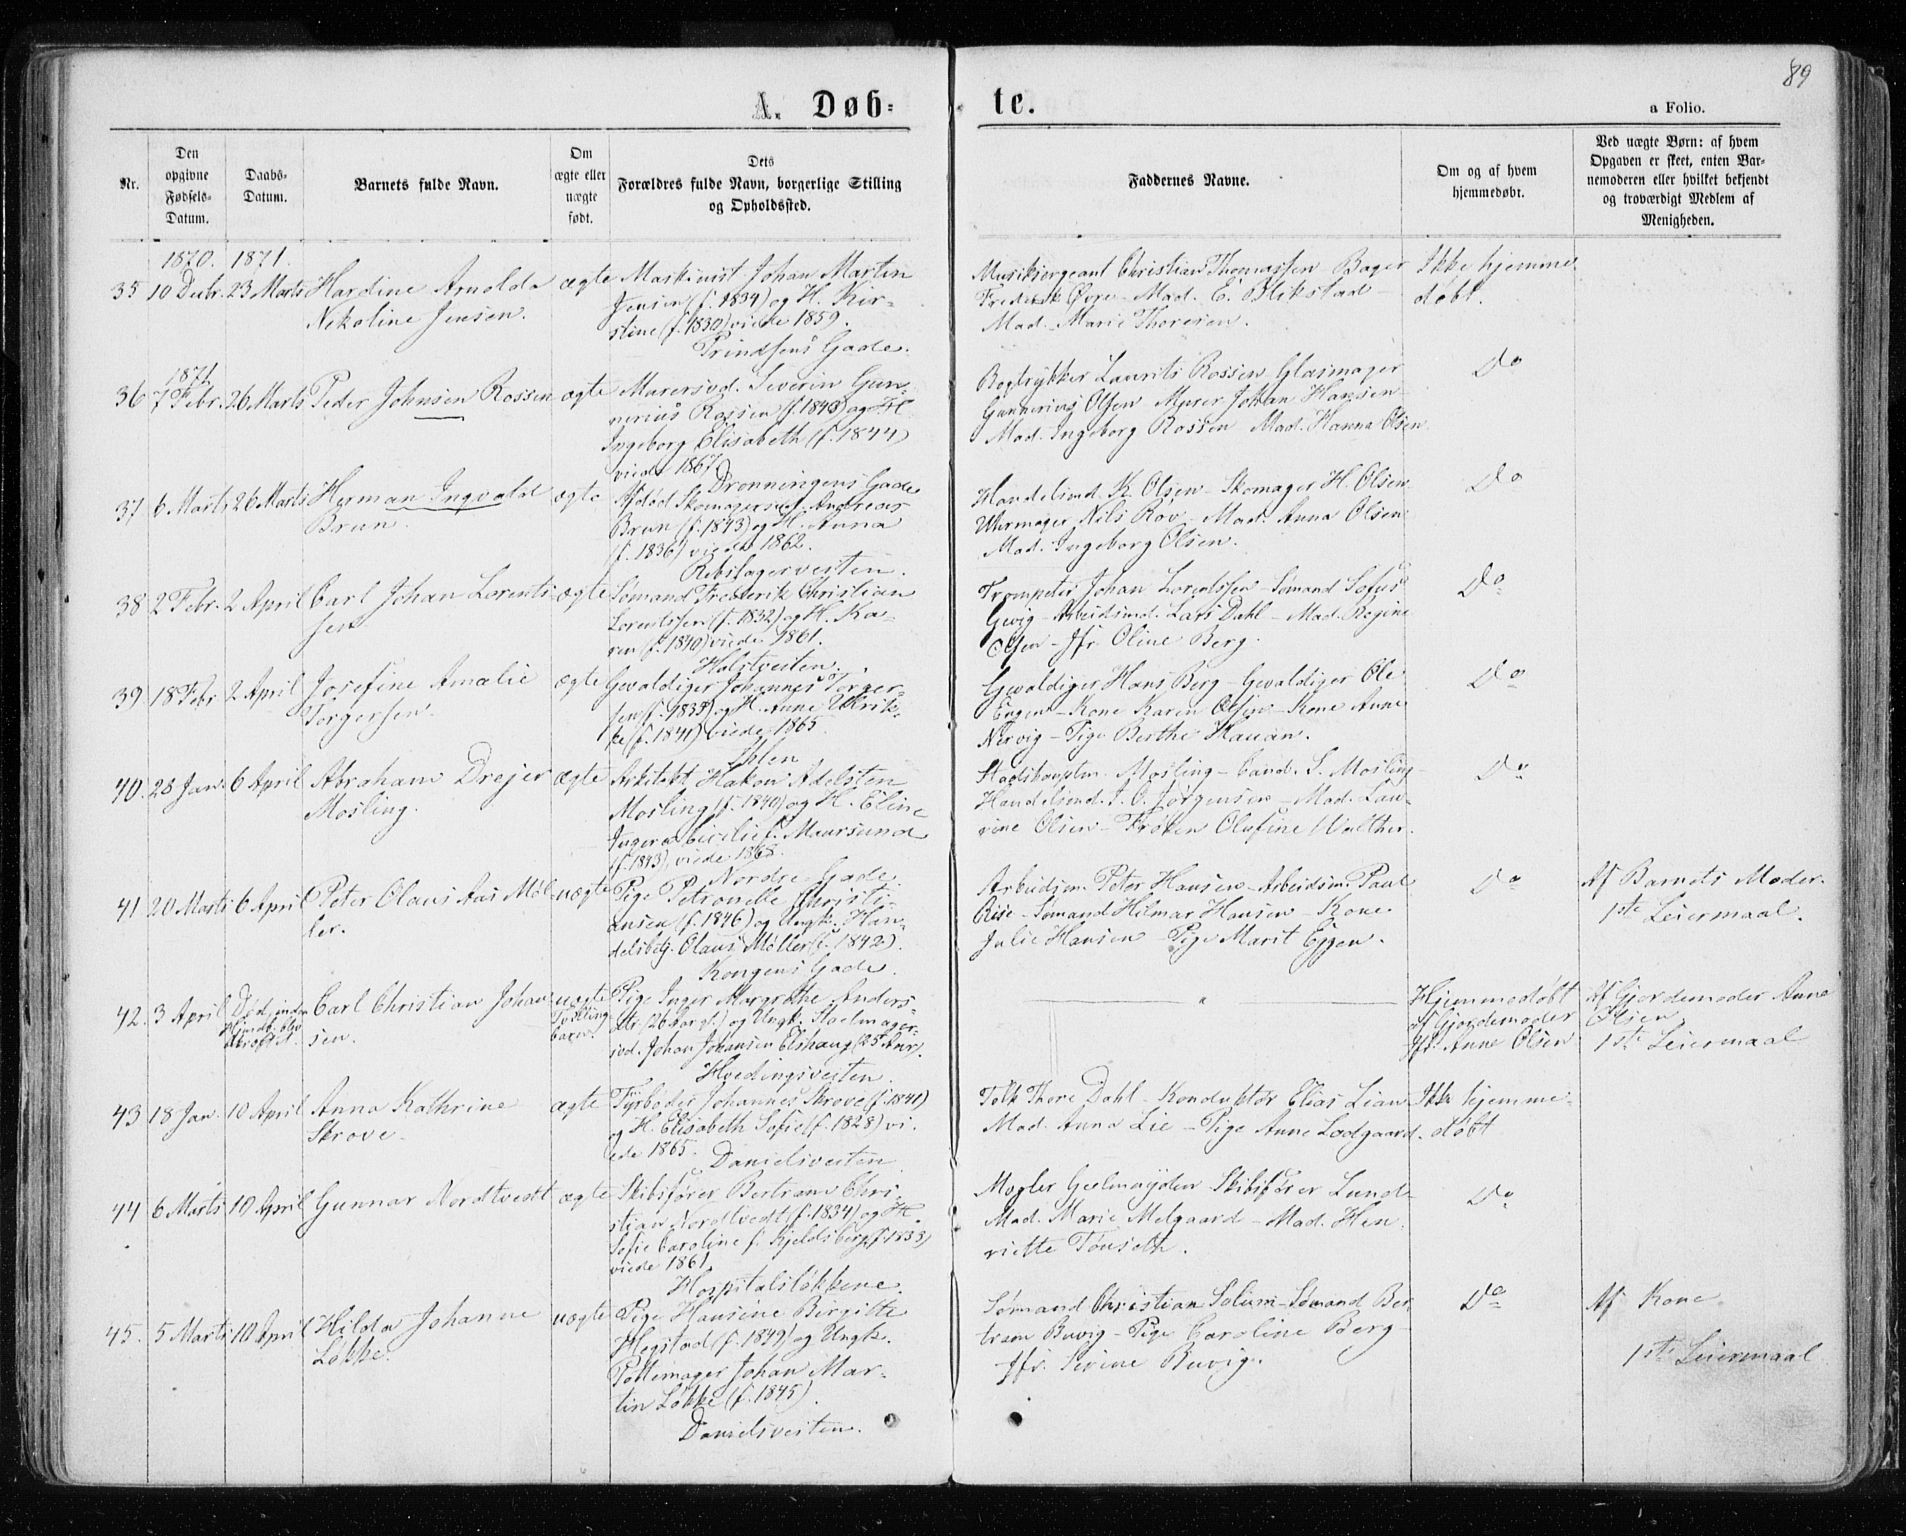 89
A. Døb-te.
a Folio.
Nr.
Den opgivne Fødsels-Datum.
Daabs-Datum.
Barnets fulde Navn.
Om ægte eller uægte født.
Dets Forældres fulde Navn, borgerlige Stilling og Opholdssted.
Faddernes Navne.
Om og af hvem hjemmedøbt.
Ved uægte Børn: af hvem Opgaven er skeet, enten Barnemoderen eller hvilket bekjendt og troværdigt Medlem af Menigheden.
1870. 1871.
35 10 Decbr. 23 Marts Hardine Arnolda ægte Maskinist Johan Martin
Nikoline Jensen. Jensen (f. 1834) og H. Kir-
stine (f. 1830) viede 1859.
Prindsens Gade.
Musiksergeant Christian Thomassen Bager Ikke hjemme
Frederik Øvre - Mad. E. Blikstad døbt.
Mad. Marie Thoresen.
1871
36 7 Febr. 26 Marts Peder Johnsen Rossen ægte Murersvd. Severin Gun-
nerius Rossen (f. 1843) og H.
Ingeborg Elisabeth (f. 1844)
viede 1867
Dronningens Gade
Bogtrykker Laurits Rossen Glasmager Do
Gunnerius Olsen Murer Johan Hansen
Mad. Ingeborg Rossen Mad. Hanna Olsen
37 6 Marts 26 Marts Herman Ingvald ægte Afdød Skomagersvd. Andreas
Brun. Brun (f. 1843) og H. Anna
(f. 1836) viede 1862.
Rebslagerveiten.
Handelsmd. K. Olsen - Skomager H. Olsen Do
Uhrmager Nils Røv - Mad. Anna Olsen
Mad. Ingeborg Olsen.
38 2 Febr. 2 April Carl Johan Lorents- ægte Sømand Frederik Christian
sen Lorentssen (f. 1832) og H. Ka-
ren (f. 1840) viede 1861.
Holstveiten.
Trompeter Johan Lorentssen - Sømand Sofus Do
Gevig - Arbeidsmd. Lars Dahl - Mad. Regine
Olsen - Jfr. Oline Berg.
39 18 Febr 2 April Josefine Amalie ægte Gevaldiger Johannes Torger-
Torgersen. sen (f. 1835) og H. Anne Ulrik-
ke (f. 1841) viede 1865
Ihlen
Gevaldiger Hans Berg - Gevaldiger Ole Do
Engen - Kone Karen Olsen - Kone Anne
Nervig - Pige Berthe Hauan.
40. 28 Jan. 6 April Abraham Drejer ægte Arkitekt Hakon Adelsten
Mosling. Mosling (f. 1840) og H. Eline
Ingera Cecilie f. Maursund
(f. 1843), viede 1868.
Nordre Gade
Stadshauptm. Mosling - Cand. S. Mosling Do
Handelsmd. J. O. Jørgensen - Mad. Lau-
rine Olsen - Frøken Olufine Walther.
41 20 Marts 6 April Peter Olaus Aas Møl- uægte Pige Petronelle Christi-
ler. ansen (f. 1846) og Ungk. Han-
delsbetj. Olaus Møller (f. 1842).
Kongens Gade.
Arbeidsm. Peter Hansen - Arbeidsm. Paul Do Af Barnets Moder.
Riise - Sømand Hilmar Hansen - Kone 1ste Leiermaal.
Julie Hansen - Pige Marit Eggen.
42. 3 April Død inden Carl Christian Johan- uægte Pige Inger Margrethe Anders-
Hjmdb. blev sen. Tvilling dtr. (26 Aar gl.) og Ungk. Sadelmager-
bekræftet. barn svd. Johan Johansen Elshaug (25 Aar).
Hvedingsveiten
— " — Hjemmedøbt Af Gjordemoder Anne
af Gjordemoder Olsen
Jfr. Anne Olsen 1ste Leiermaal
43 18 Jan. 10 April Anna Kathrine ægte Fyrbøder Johannes Skrove (f. 1841)
Skrove. og H. Elisabeth Sofie (f. 1828) vi-
ede 1865. Danielsveiten
Tolk Thore Dahl - Konduktør Elias Lian Ikke hjemme-
Mad. Anna Lie - Pige Anne Lodgaard. døbt
44 6 Marts 10 April Gunnar Nordtvedt ægte Skibsfører Bertram Chri-
stian Nordtvedt (f. 1834) og H.
Sofie Caroline f. Kjeldsberg (f. 1833)
viede 1861
Hospitalsløkkene.
Mægler Geelmuyden - Skibsfører Lund Do
Mad. Marie Melgaard - Mad. Hen-
riette Tønseth.
45. 5 Marts 10 April Hilda Johanne uægte Pige Hansine Birgitte
Løkke. Hegstad (f. 1849) og Ungk.
Pottemager Johan Mar-
tin Løkke (f. 1845).
Danielsveiten.
Sømand Christian Solum - Sømand Ber- Do Af Kone
tram Buvig - Pige Caroline Berg 1ste Leiermaal
Jfr. Sevine Buvig.